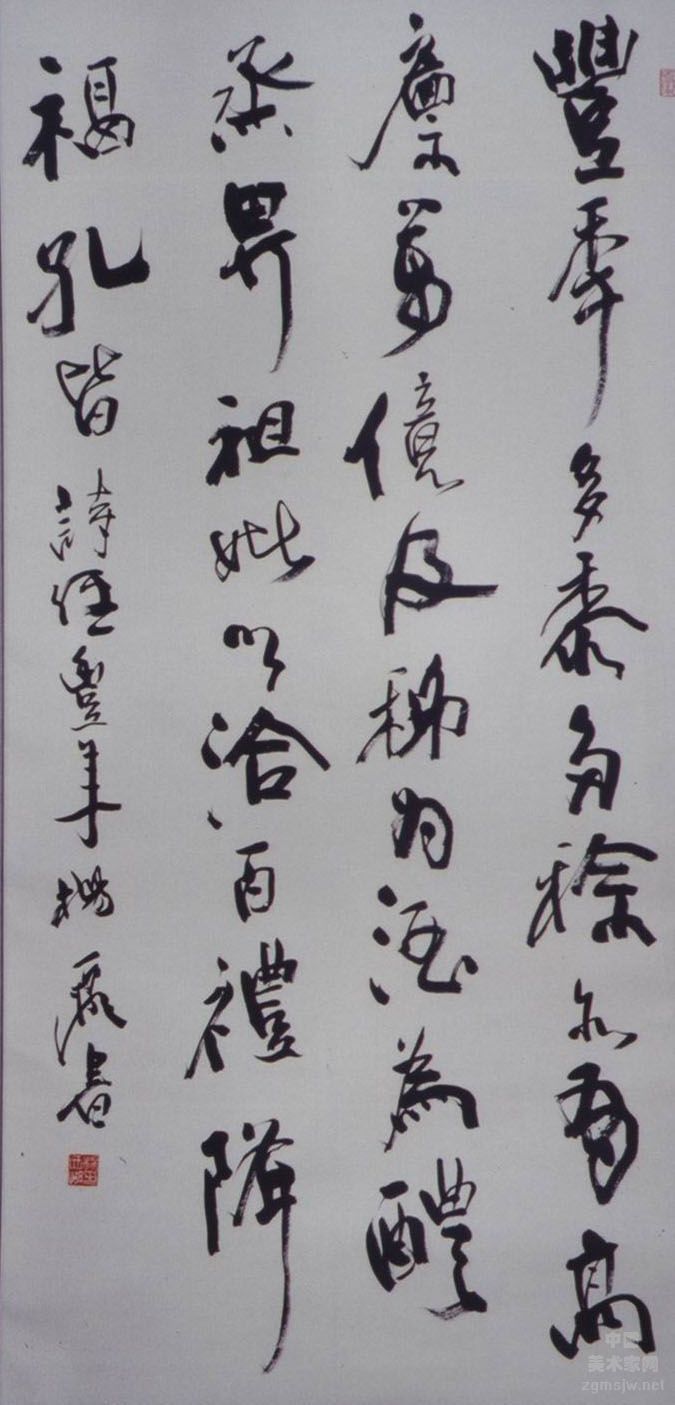 豐年多黍多稌亦有高
廩萬億及秭為酒為醴
烝畀祖妣以洽百禮降
福孔皆詩經豐年楊書
中国
美术家网
zgmsjw.net